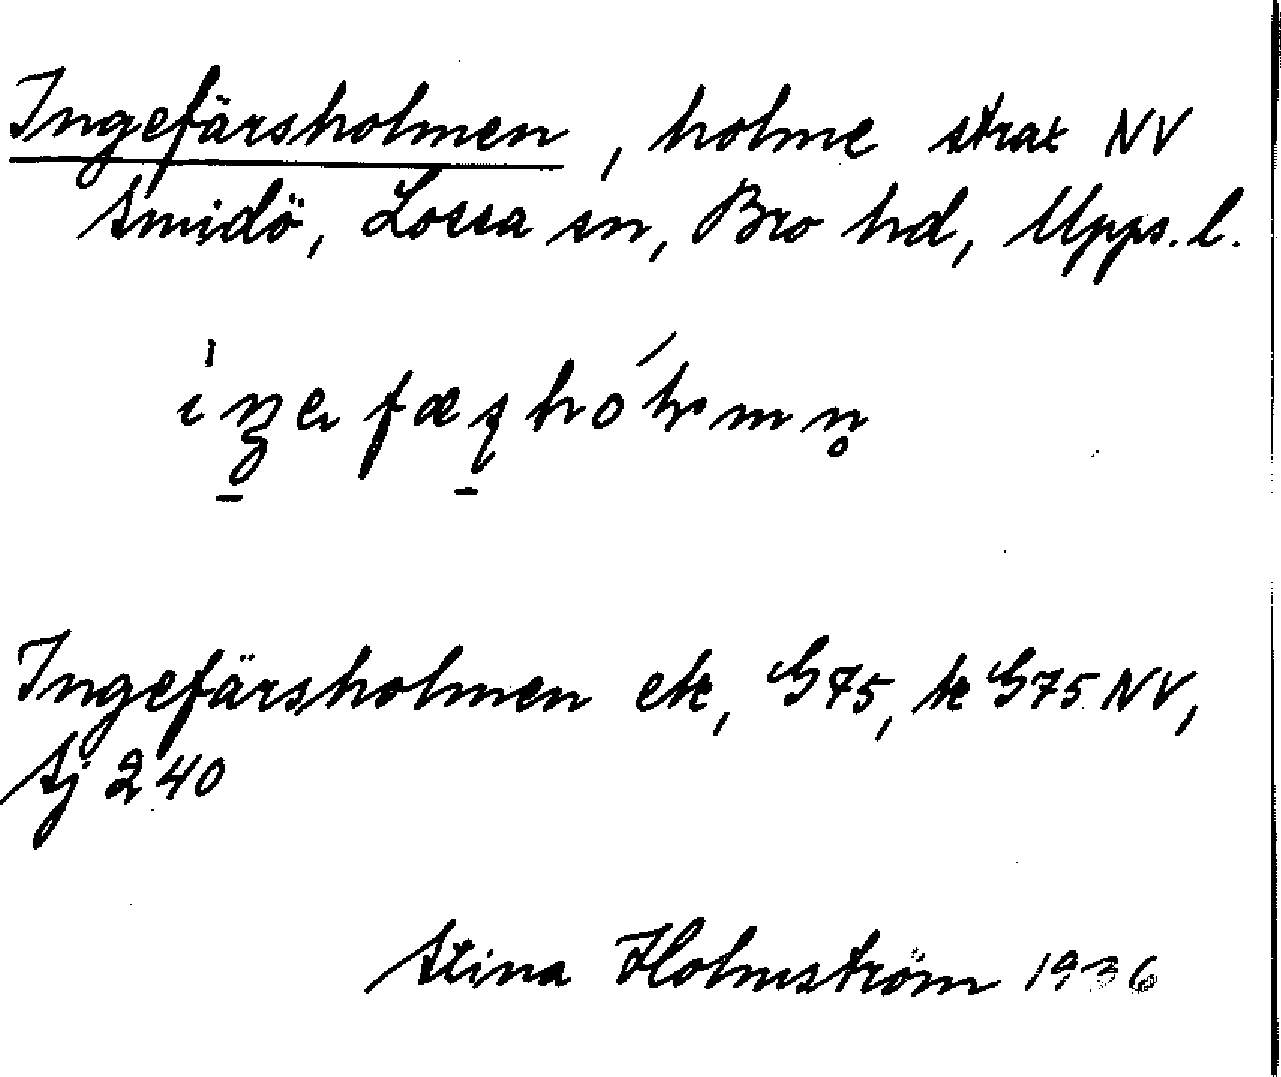 Ingefärsholmen, holme strax NV
Smidö, Lossa sn, Bro hd, Upps. l.
Ingefärsholmen ek, G75, te G75 NV,
Sj 240
Stina Holmström 1936